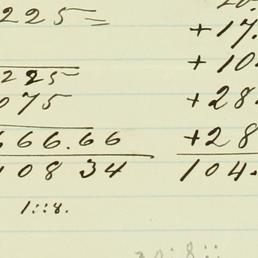 225=
225
075
666.66
108 34
1::8.
+17.
+10
+28
+28
104.